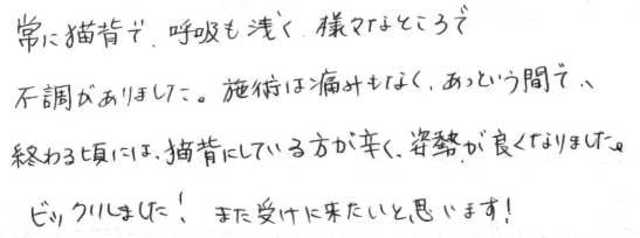 常に猫背で、呼吸も浅く、様々なところで
不調がありました。施術は痛みもなく、あっという間で、
終わる頃には、猫背にしている方が辛く、姿勢が良くなりました。
ビックリしました! また受けに来たいと思います!